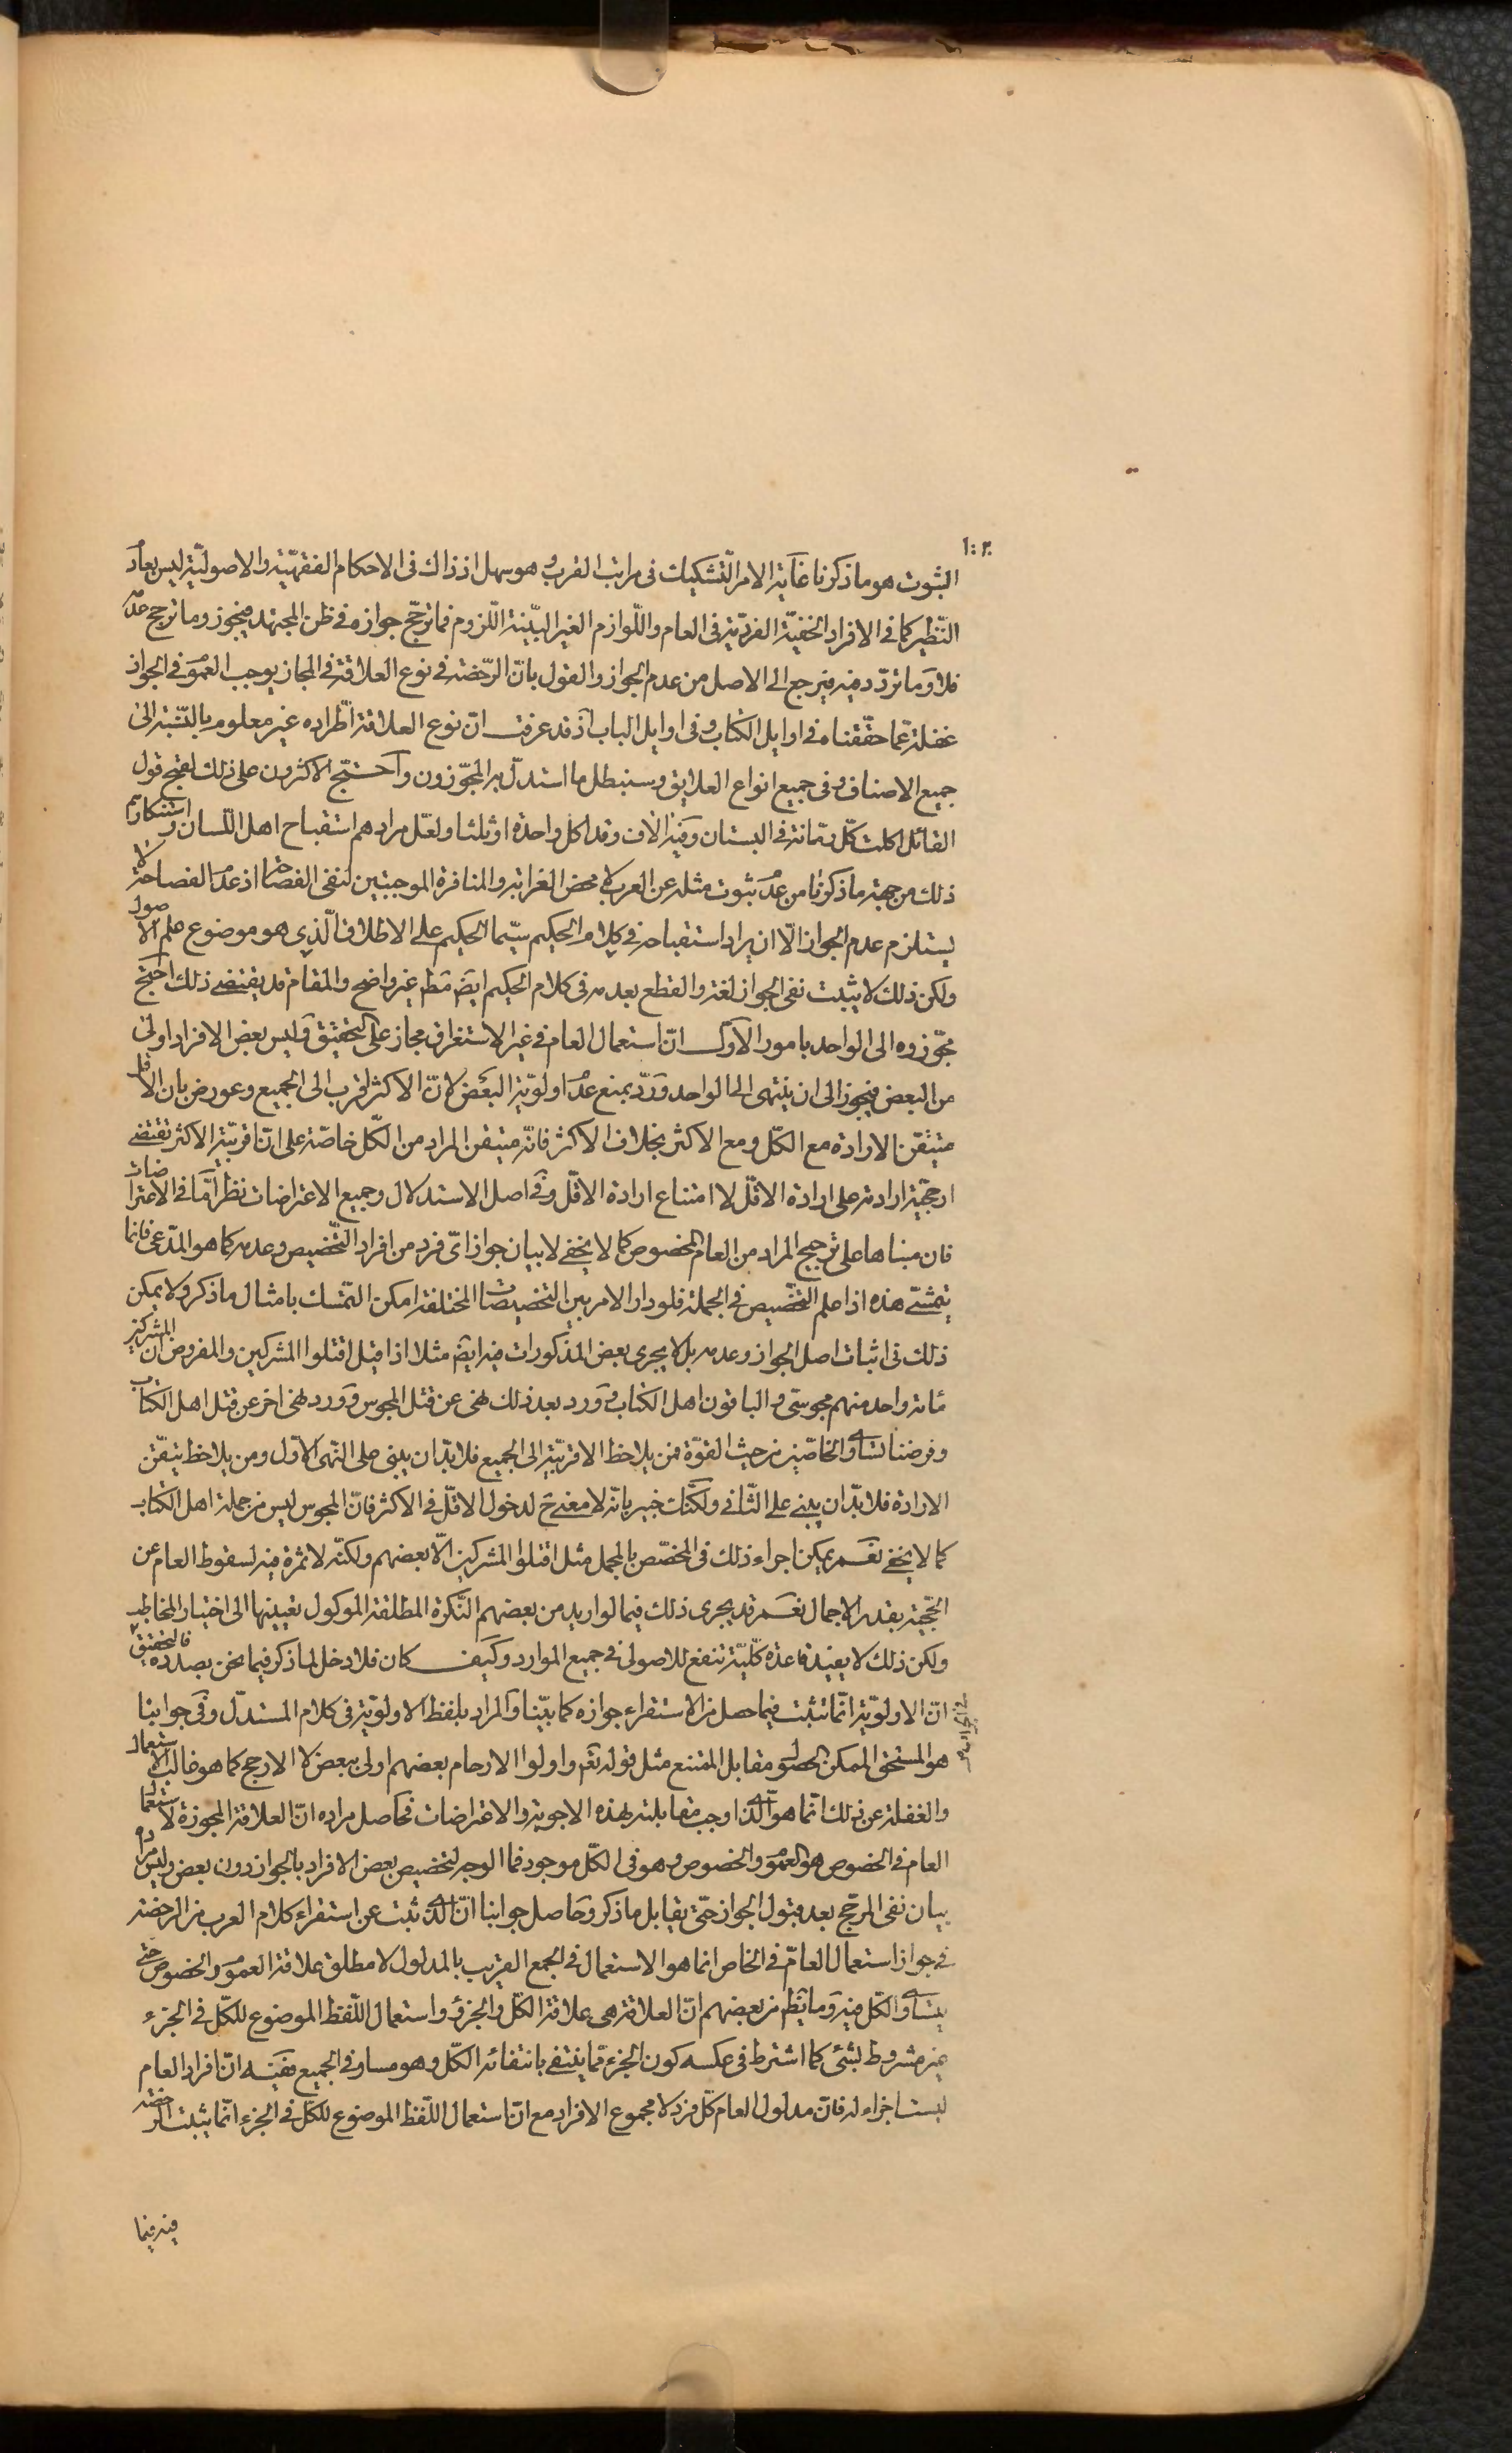 ١٠٢
الثبوت هو ما ذكرنا غاية الامر التشكيك فى مراتب القرب و هو سهل اذ ذاك فى الاحكام الفقهيّة و الاصوليّة ليس بعادم
النّظير كما فى الافراد الخفيّة الفرديّة فى العام و اللّوازم الغير البيّنة اللّزوم فما ترجّح جوازه فى ظن المجتهد يجوز و ما ترجح عدمه
فلا و ما تردّد فيه فيرجع الى الاصل من عدم الجواز و القول بانّ الرّخصة فى نوع العلاقة فى المجاز يوجب العموم فى الجواز
غفلة عمّا حقّقناه فى اوايل الكتاب و فى اوايل الباب اذ قد عرفت انّ نوع العلاقة اطّراده غير معلوم بالنّسبة الى
جميع الاصناف و فى جميع انواع العلايق و سنبطل ما استدلّ به المجوّزون و احتجّ الاكثرون على ذلك بقبح قول
القائل اكلت كلّ رمّانة فى البستان و فيه الاف و قد اكل واحدة او ثلثا و لعلّ مرادهم استقباح اهل اللّسان و استنكارهم
ذلك من جهة ما ذكرنا من عدم ثبوت مثله عن العرب لا محض الغرابة و المنافرة الموجبتين لنفى الفصاحة اذ عدم الفصاحة لا
يستلزم عدم الجواز الّا ان يراد استقباحه فى كلام الحكيم سيّما الحكيم على الاطلاق الّذى هو موضوع علم الاصول
و لكن ذلك لا يثبت نفى الجواز لغة و القطع بعدمه فى كلام الحكيم ايضا مط غير واضح و المقام قد يقتضى ذلك احتج
مجّوزوه الى الواحد بامور الاوّل انّ استعمال العام فى غير الاستغراق مجاز على التحقيق و ليس بعض الافراد اولى
من البعض فيجوز الى ان ينتهى الى الواحد و ردّ بمنع عدم اولويّة البعض لانّ الاكثر اقرب الى الجميع و عورض بان الاقل
متيقّن الارادة مع الكلّ و مع الاكثر بخلاف الاكثر فانّه متيقن المراد من الكلّ خاصّة على انّ اقربيّة الاكثر تقتضى
ارجحيّة ارادته على ارادة الاقلّ لا امتناع ارادة الاقلّ و فى اصل الاستدلال و جميع الاعتراضات نظر امّا فى الاعتراضات
فان مبناها على ترجيح المراد من العام المخصوص كما لا يخفى لا بيان جواز اىّ فرد من افراد التّخصيص و عدمه كما هو المدّعى فانما
يتمشّى هذه اذا علم التخصّيص فى الجملة فلو دار الامر بين التخصيصات المختلفة امكن التمسّك بامثال ما ذكر و لا يمكن
ذلك فى اثبات اصل الجواز و عدمه بل لا يجرى بعض المذكورات فيه ايضا مثلا اذا قيل اقتلوا المشركين و المفروض ان المشركين
مائة واحد منهم مجوسىّ و الباقون اهل الكتاب و ورد بعد ذلك نهى عن قتل المجوس و ورد نهى اخر عن قتل اهل الكتاب
و فرضنا تساوى الخاصّين من حيث القوّة فمن يلاحظ الاقربيّة الى الجميع فلا بدّ ان يبنى على النّهى الاوّل و من يلاحظ تيقّن
الارادة فلا بدّ ان يبنى على الثّانى و لكنّك خبير بانّه لا معنى ح لدخول الاقلّ فى الاكثر فانّ المجوس ليس من جملة اهل الكتاب
كما لا يخفى نعم يمكن اجراء ذلك فى المخصّص بالمجمل مثل اقتلوا المشركين الّا بعضهم و لكنّه لا ثمرة فيه لسقوط العام عن
الحجّية بقدر الاجمال نعم قد يجرى ذلك فيما لو اريد من بعضهم النّكرة المطلقة الموكول تعيينها الى اختيار المخاطب
و لكن ذلك لا يفيد قاعدة كلّيّة تنفع للاصولى فى جميع الموارد و كيف كان فلا دخل لما ذكر فيما نحن بصدده فالتحقيق
انّ الاولويّة انّما تثبت فيما حصل من الاستقراء جوازه كما بيّنا و المراد بلفظ الاولويّة فى كلام المستدلّ و فى جوابنا
هو المستحق الممكن الحصول مقابل الممتنع مثل قوله تعم و اولوا الارحام بعضهم اولى ببعض لا الارجح كما هو غالب الاستعمال
و الغفلة عن ذلك انّما هو الّذى اوجب مقابلته لهذه الاجوبة و الاعتراضات فحاصل مراده انّ العلاقة المجوزة لاستعمال
العام فى الخصوص هو العموم و الخصوص و هو فى الكلّ موجود فما الوجه لتخصيص بعض الافراد بالجواز دون بعض و ليس مراده
بيان نفى المرجّح بعد قبول الجواز حتّى يقابل ما ذكر و حاصل جوابنا انّ الّذى ثبت عن استقراء كلام العرب من الرخصة
فى جواز استعمال العامّ فى الخاص انما هو الاستعمال فى الجمع القريب بالمدلول لا مطلق علاقة العموم و الخصوص حتى
يتساوى الكلّ فيه و ما يظهر من بعضهم انّ العلاقة هى علاقة الكلّ و الجزء و استعمال اللّفظ الموضوع للكلّ فى الجزء
غير مشروط بشئ كما اشترط فى عكسه كون الجزء ممّا ينتفى بانتفائه الكلّ و هو مساو فى الجميع ففيه انّ افراد العام
ليست اجزاء له فانّ مدلول العام كلّ فرد لا مجموع الافراد مع انّ استعمال اللّفظ الموضوع للكلّ فى الجزء انّما يثبت الرخصة
فيه فيما